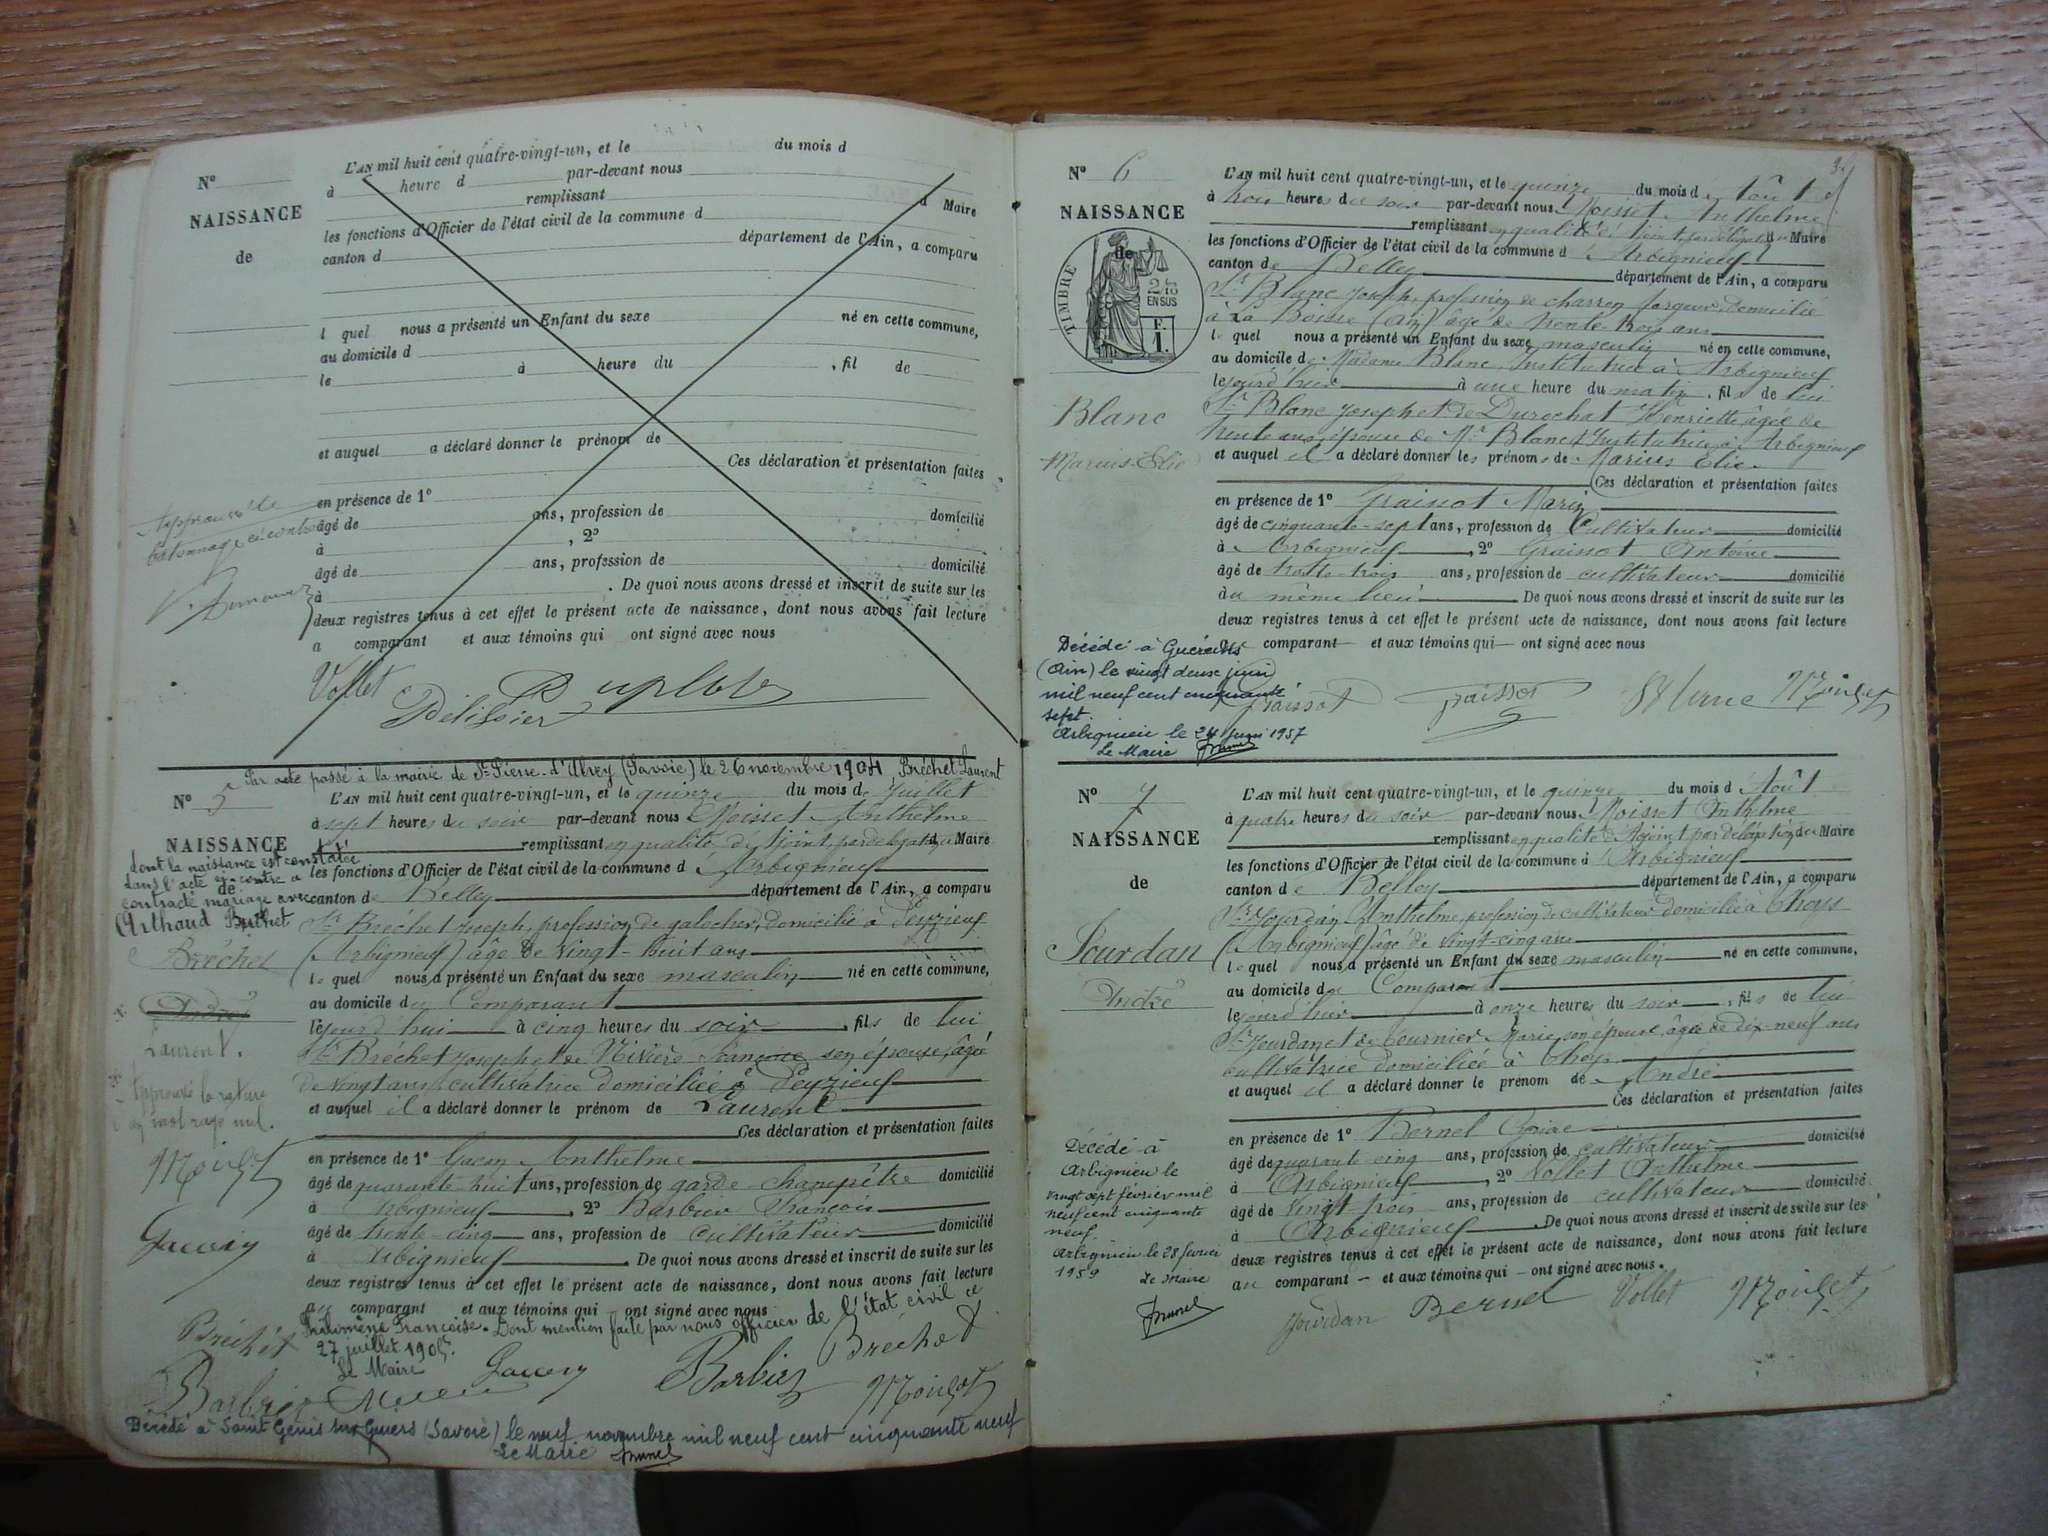 N°
NAISSANCE
de
L'AN mil huit cent quatre-vingt-un, et le du mois d
à heure d par-devant nous
remplissant d Maire
les fonctions d'Officier de l'état civil de la commune d
canton d département de l'Ain, a comparu
l quel nous a présenté un Enfant du sexe né en cette commune,
au domicile d
le à heure du , fil de
et auquel a déclaré donner le prénom de
Ces déclaration et présentation faites
en présence de 1°
âgé de ans, profession de domicilié
à , 2°
âgé de ans, profession de domicilié
à . De quoi nous avons dressé et inscrit de suite sur les
deux registres tenus à cet effet le présent acte de naissance, dont nous avons fait lecture
a comparant et aux témoins qui ont signé avec nous
Approuvé le
bâtonnage ci-contre
Vollet
Pélissier
Par acte passé à la mairie de St Pierre d'Alvey (Savoie) le 26 novembre 1904, Bréchet Laurent
N° 5
NAISSANCE
de
dont la naissance est constatée
dans l'acte ci-contre a
contracté mariage avec
Arthaud Buthet
Bréchet
André
Laurent.
Approuvé la rature
Moisset
Bréchet
Barbier
L'AN mil huit cent quatre-vingt-un, et le quinze du mois de Juillet
à sept heures du soir par-devant nous Moisset Anthelme
remplissant en qualité d'Adjoint par délégation du Maire
les fonctions d'Officier de l'état civil de la commune d'Arbignieu
canton de Belley département de l'Ain, a comparu
Sr Bréchet Joseph, profession de galocher, domicilié à Peyzieu
(Arbignieu) âgé de vingt-huit ans
le quel nous a présenté un Enfant du sexe masculin né en cette commune,
au domicile du Comparant
le jourd'hui à cinq heures du soir, fils de lui
Sr Bréchet Joseph et de Rivière Françoise son épouse, âgée
de vingt ans, cultivatrice domiciliée à Peyzieu
et auquel il a déclaré donner le prénom de Laurent
Ces déclaration et présentation faites
en présence de 1° Anthelme
âgé de quarante-huit ans, profession de garde-champêtre domicilié
à Arbignieu, 2° Barbier François
âgé de trente-cinq ans, profession de cultivateur domicilié
à Arbignieu. De quoi nous avons dressé et inscrit de suite sur les
deux registres tenus à cet effet le présent acte de naissance, dont nous avons fait lecture
au comparant et aux témoins qui ont signé avec nous
Philomène Françoise. Dont mention faite par nous officier de l'état civil ce
27 juillet 1905.
Le Maire
Barbier
Bréchet
Moisset
Décédé à Saint Genis sur Guiers (Savoie) le neuf novembre mil neuf cent cinquante neuf
Le Maire
N° 6
NAISSANCE
de
TIMBRE
2/10 EN SUS
F. 1.
Blanc
Marius-Elie
L'AN mil huit cent quatre-vingt-un, et le quinze du mois d'Août
à trois heures du soir par-devant nous Moisset Anthelme
remplissant en qualité d'Adjoint par délégation du Maire
les fonctions d'Officier de l'état civil de la commune d'Arbignieu
canton de Belley département de l'Ain, a comparu
Sr Blanc Joseph, profession de charron forgeur, domicilié
à La Boisse (Ain) âgé de trente-trois ans
le quel nous a présenté un Enfant du sexe masculin né en cette commune,
au domicile de Madame Blanc, Institutrice à Arbignieu
le jourd'hui à une heure du matin, fils de lui
Sr Blanc Joseph et de Durochat Henriette âgée de
trente ans, épouse de Mr Blanc, Institutrice à Arbignieu
et auquel il a déclaré donner les prénoms de Marius Elie
Ces déclaration et présentation faites
en présence de 1° Graissot Marin
âgé de cinquante-sept ans, profession de Cultivateur domicilié
à Arbignieu, 2° Graissot Antoine
âgé de trente-trois ans, profession de cultivateur domicilié
au même lieu. De quoi nous avons dressé et inscrit de suite sur les
deux registres tenus à cet effet le présent acte de naissance, dont nous avons fait lecture
au comparant et aux témoins qui ont signé avec nous
Décédé à
(Ain) le vingt deux juin
mil neuf cent cinquante
sept.
Arbignieu le 24 juin 1957
Le Maire
Graissot Graissot Blanc Moisset
N° 7
NAISSANCE
de
Jourdan
André
L'AN mil huit cent quatre-vingt-un, et le quinze du mois d'Août
à quatre heures du soir par-devant nous Moisset Anthelme
remplissant en qualité d'Adjoint par délégation du Maire
les fonctions d'Officier de l'état civil de la commune d'Arbignieu
canton de Belley département de l'Ain, a comparu
Sr Jourdan Anthelme, profession de cultivateur domicilié à Thoys
(Arbignieu) âgé de vingt-cinq ans
le quel nous a présenté un Enfant du sexe masculin né en cette commune,
au domicile du Comparant
le jourd'hui à onze heures du soir, fils de lui
Sr Jourdan et de Tournier Marie, son épouse, âgée de dix-neuf ans
cultivatrice domiciliée à Thoys
et auquel il a déclaré donner le prénom de André
Ces déclaration et présentation faites
en présence de 1° Bernel
âgé de quarante-cinq ans, profession de cultivateur domicilié
à Arbignieu, 2° Vollet Anthelme
âgé de vingt-trois ans, profession de cultivateur domicilié
à Arbignieu. De quoi nous avons dressé et inscrit de suite sur les
deux registres tenus à cet effet le présent acte de naissance, dont nous avons fait lecture
au comparant et aux témoins qui ont signé avec nous.
Décédé à
Arbignieu le
vingt sept février mil
neuf cent cinquante
neuf.
Arbignieu le 28 février
1959
Le Maire
Jourdan Bernel Vollet Moisset